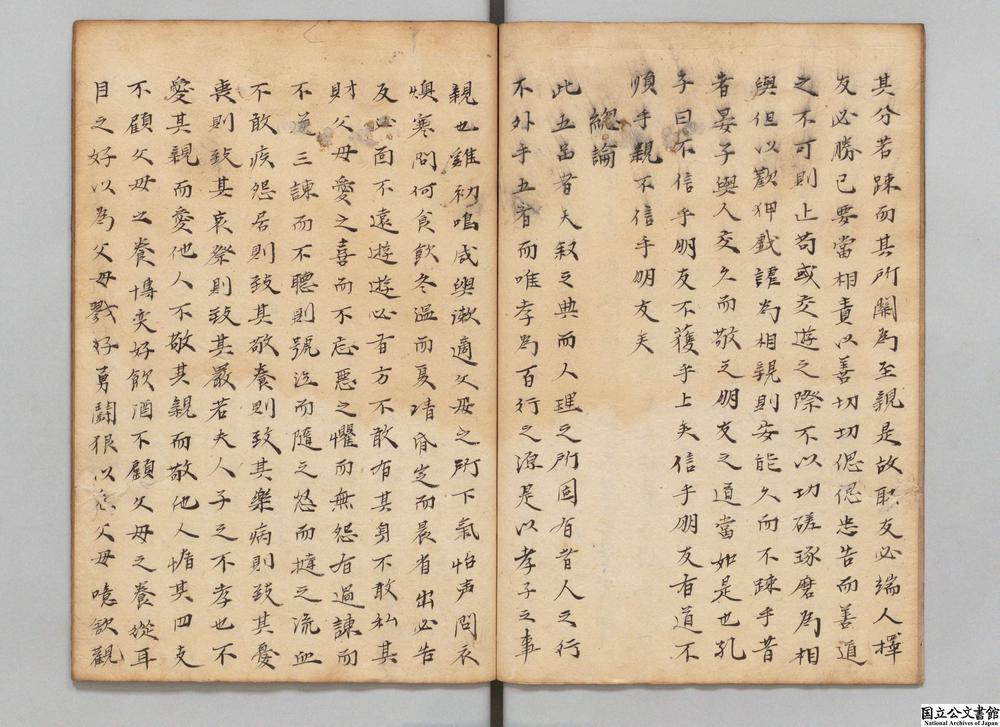 其分若踈而其所關為至親是故取友必端人擇
友必勝已要當相責以善切切偲偲忠告而善道
之不可則止苟或交遊之際不以切磋琢磨為相
與但以歡狎戲謔為相親則安能久而不踈乎昔
者晏子與人交久而敬之朋友之道當如是也孔
子曰不信乎朋友不獲乎上矣信乎朋友有道不
順乎親不信乎朋友矣
總論
此五品者天叙之典而人理之所固有者人之行
不外乎五者而唯孝為百行之源是以孝子之事
親也雞初鳴咸與漱適父母之所下氣怡声問衣
燠寒問何食飲冬温而夏凊昏定而晨省出必告
反必面不遠遊遊必有方不敢有其身不敢私其
財父母愛之喜而不忘惡之懼而無怨有過諫而
不逆三諫而不聽則號泣而隨之怒而撻之流血
不敢疾怨居則致其敬養則致其樂病則致其憂
喪則致其哀祭則致其嚴若夫人子之不孝也不
愛其親而愛他人不敬其親而敬他人惰其四支
不顧父母之養博奕好飲酒不顧父母之養從耳
目之好以為父母戮好勇鬪狠以危父母噫欲觀
国立公文書館
National Archives of Japan